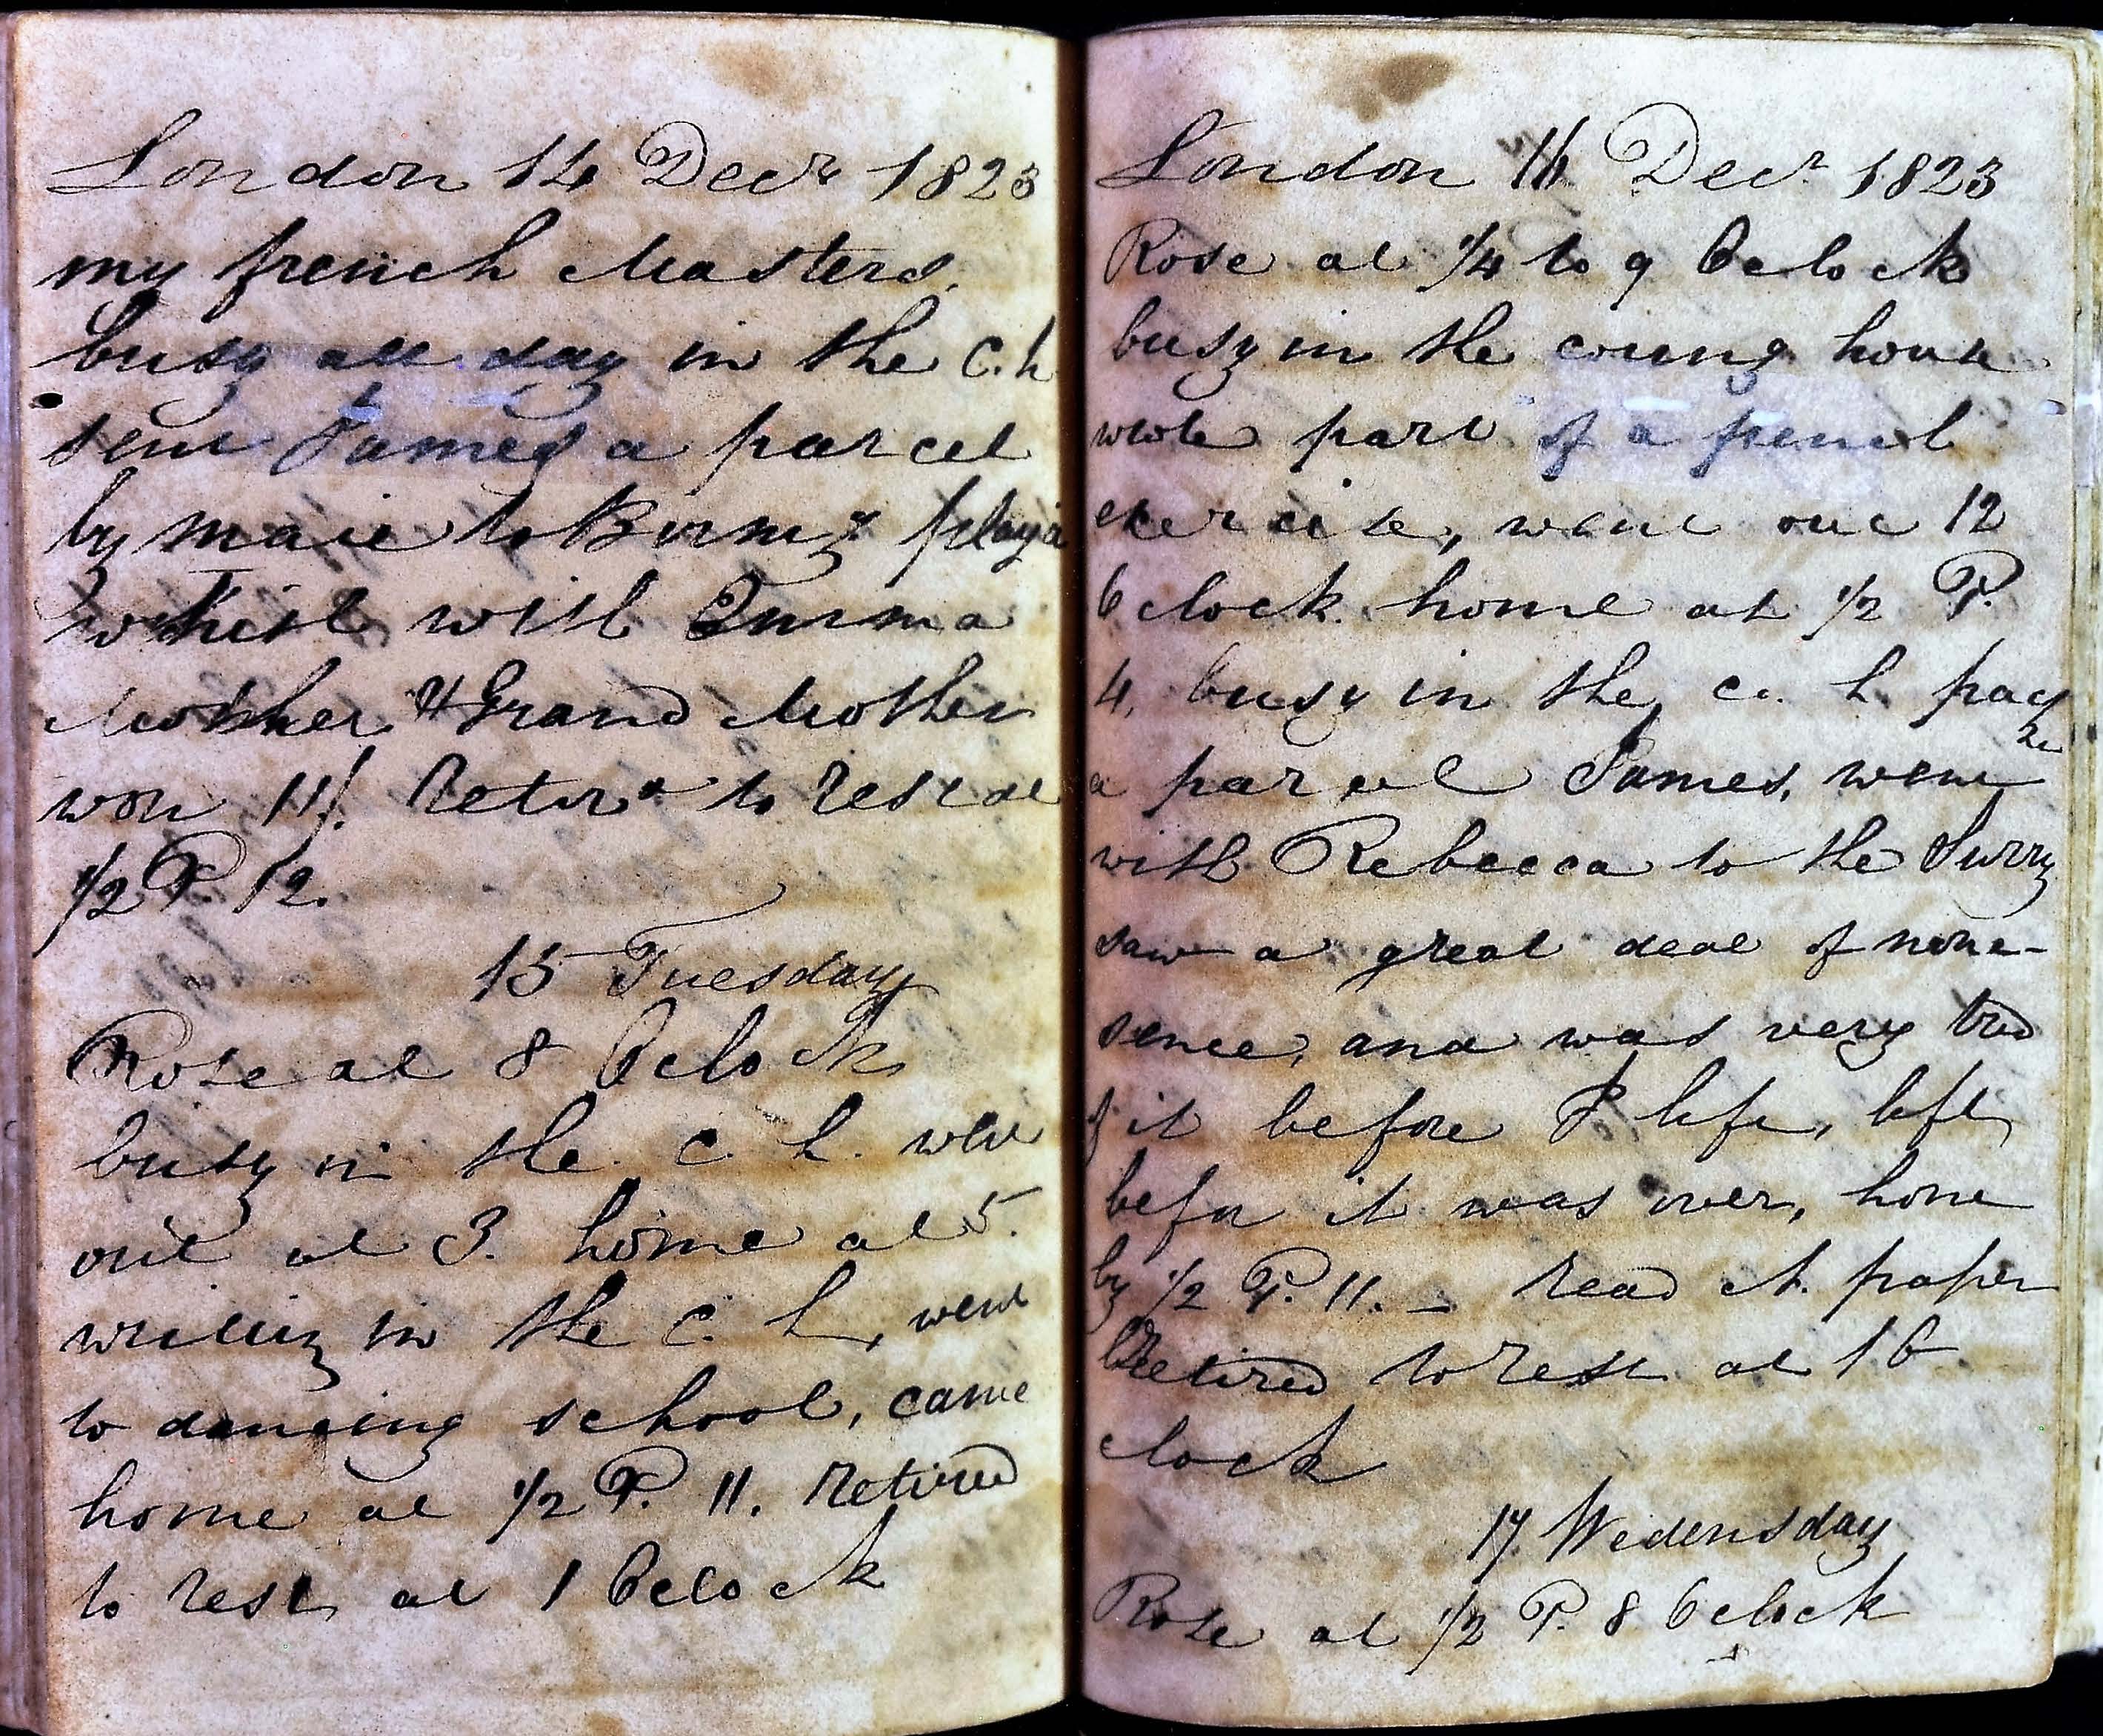 London 14 Decr 1823
my french Masters,
busy all day in the C. h
sent James a parcel
by mail to Birmg play'd
whist with Emma
Mother & Grand Mother
won 11/. Retird to rest at
1/2 P. 12.
15 Tuesday
Rose at 8 Oclock
busy in the c. h. went
out at 3. home at 5.
writing in the c. h, went
to dancing school, came
home at 1/2 P. 11. Retired
to rest at 1 Oclock
London 16 Decr 1823
Rose at 1/4 to 9 Oclock
busy in the coung house
wrote part of a french
exercise, went out 12
Oclock. home at 1/2 P.
4, busy in the c. h. pack
a parcel James, went
with Rebecca to the Surry
saw a great deal of none-
sence, and was very tired
of it before I left, left
before it was over, home
by 1/2 P. 11. - Read paper
Retired to rest at 1 O
clock
17 Wedensday
Rose at 1/2 P. 8 Oclock